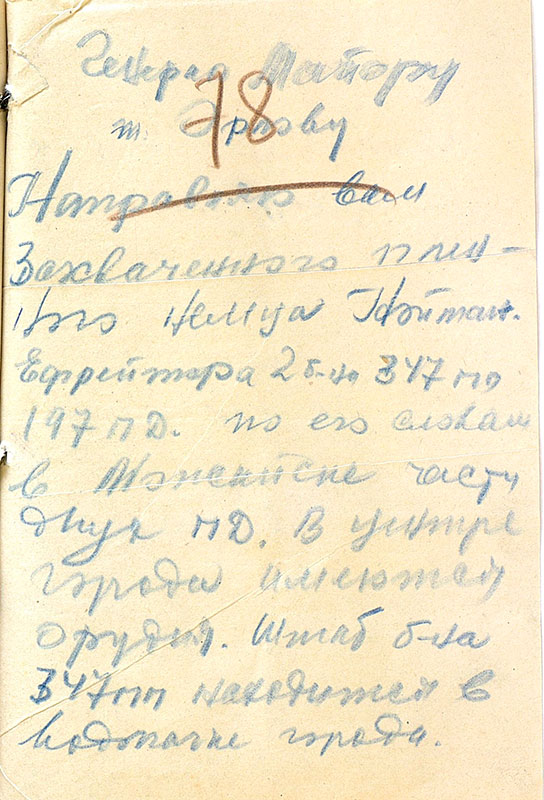 Генерал Майору
78
т. Орлову
Направляю вам
Захваченного плен-
ного немца
Ефрейтора 2 б-на 347 пп
197 ПД. по его словам
в Можайске части
двух ПД. В центре
города имеются
орудия. Штаб б-на
347 пп находится в
водокачке города.